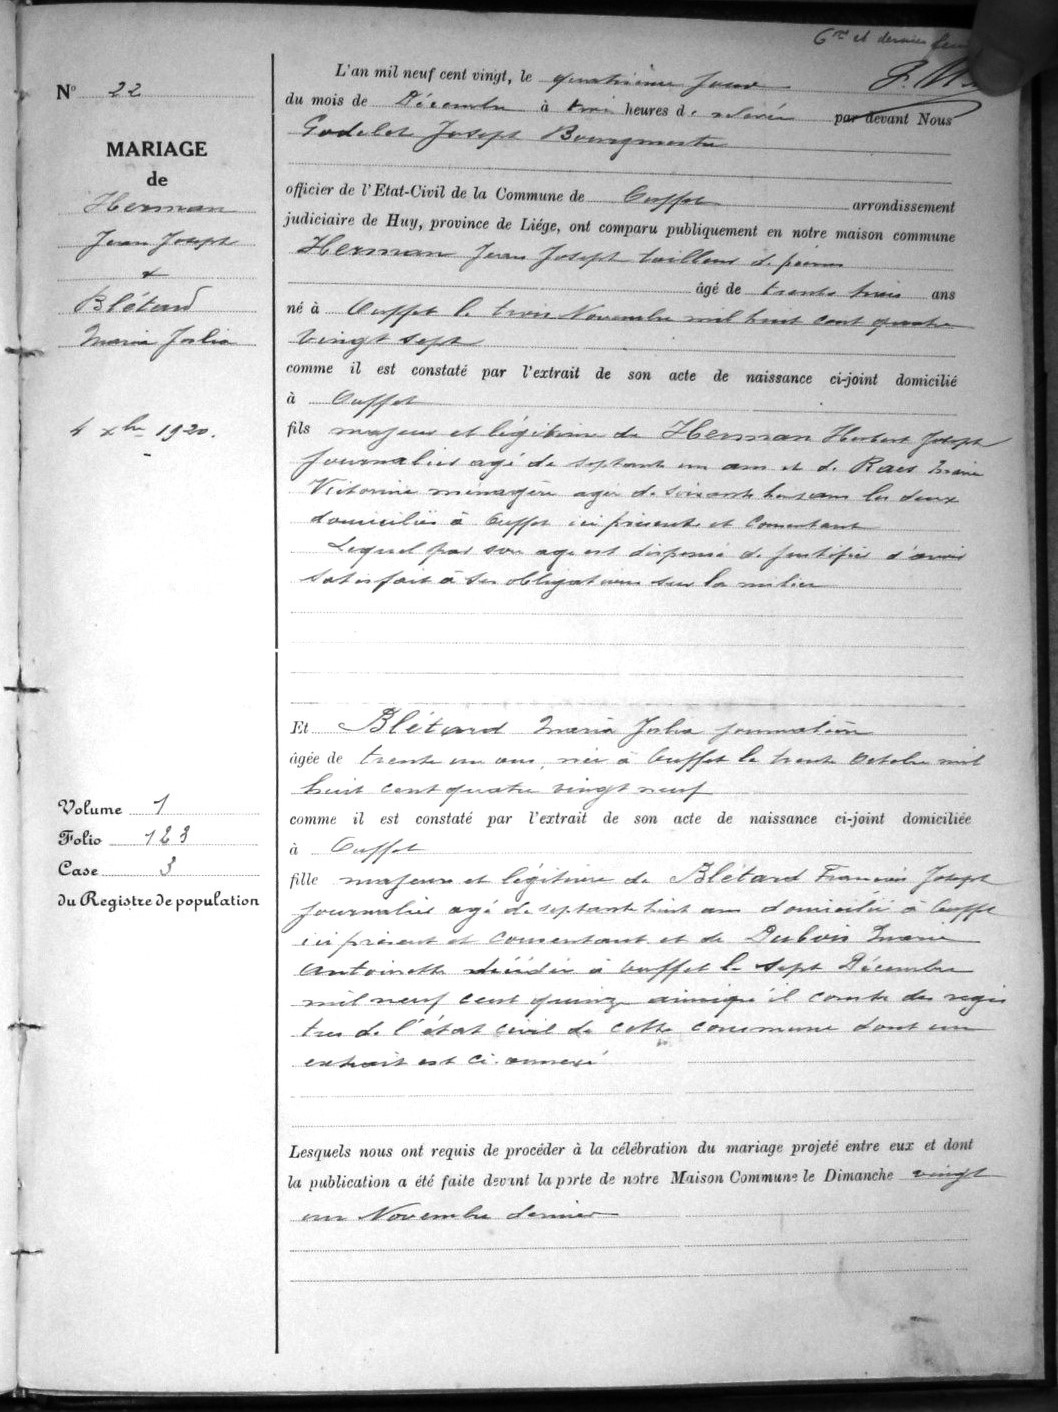 6me et dernier
N° 22
MARIAGE
de
Herman
Jean Joseph
&
Blétard
Maria Joslia
4 xbre 1920.
Volume 1
Folio 123
Case 3
du Registre de population
L'an mil neuf cent vingt, le quatrième jour
du mois de Décembre à trois heures de relevée par devant Nous
Godelet Joseph Bourgmestre
officier de l'Etat-Civil de la Commune de Ouffet arrondissement
judiciaire de Huy, province de Liége, ont comparu publiquement en notre maison commune
Herman Jean Joseph tailleur de pierres
âgé de trente trois ans
né à Ouffet le trois Novembre mil huit cent quatre
vingt sept
comme il est constaté par l'extrait de son acte de naissance ci-joint domicilié
à Ouffet
fils majeur et légitime de Herman Hubert Joseph
journalier agé de septante un ans et de Raes Marie
Victorine ménagère agée de soixante huit ans les deux
domiciliés à Ouffet ici présents et consentant
Lequel par son age est dispensé de justifier d'avoir
satisfait à ses obligations sur la milice
Et Blétard Maria Joslia journalière
âgée de trente un ans, née à Ouffet le trente Octobre mil
huit cent quatre vingt neuf
comme il est constaté par l'extrait de son acte de naissance ci-joint domiciliée
à Ouffet
fille majeure et légitime de Blétard François Joseph
journalier agé de septante huit ans domicilié à Ouffet
ici présent et consentant et de Dubois Marie
Antoinette décédée à Ouffet le sept Décembre
mil neuf cent quinze ainsi qu'il conste des regis
tres de l'état civil de cette commune dont un
extrait est ci-annexé
Lesquels nous ont requis de procéder à la célébration du mariage projeté entre eux et dont
la publication a été faite devant la porte de notre Maison Commune le Dimanche vingt
un Novembre dernier